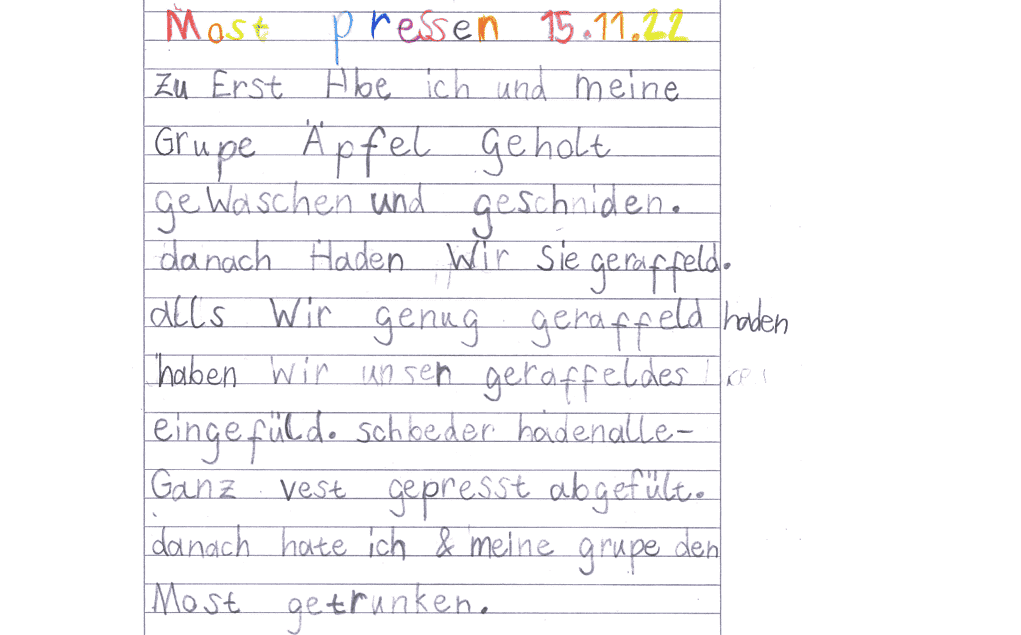 Most pressen 15.11.22
Zu Erst Hbe ich und meine
Grupe Äpfel Geholt
geWaschen und geschniden.
danach Haden Wir Sie geraffeld.
alls Wir genug geraffeld haden
haben Wir unsen geraffeldes
eingefüld. schbeder hadenalle-
Ganz vest gepresst abgefült.
danach hate ich & meine grupe den
Most getrunken.